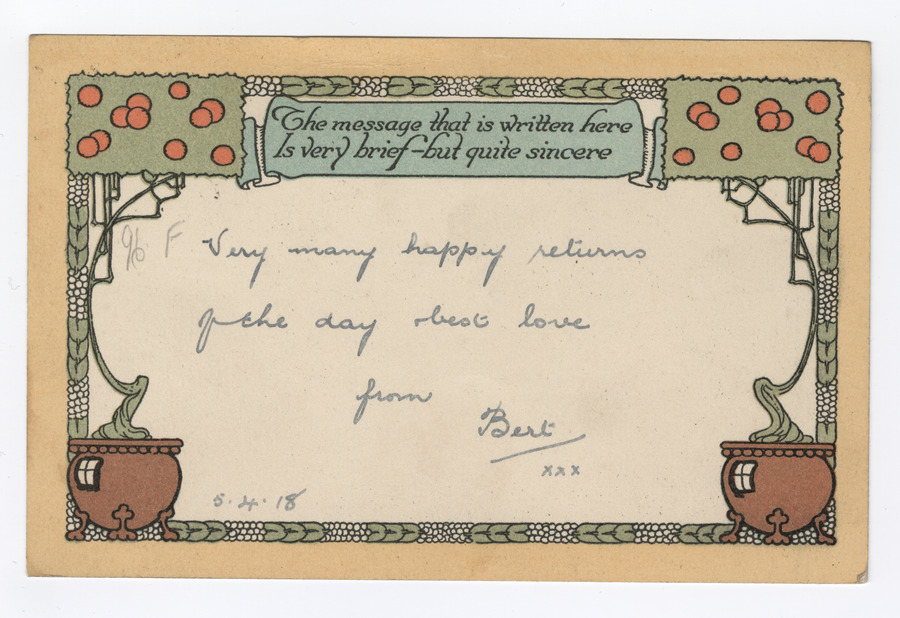 The message that is written here
Is very brief-but quite sincere
F Very many happy returns
of the day best love
from
Bert
xxx
5.4.18